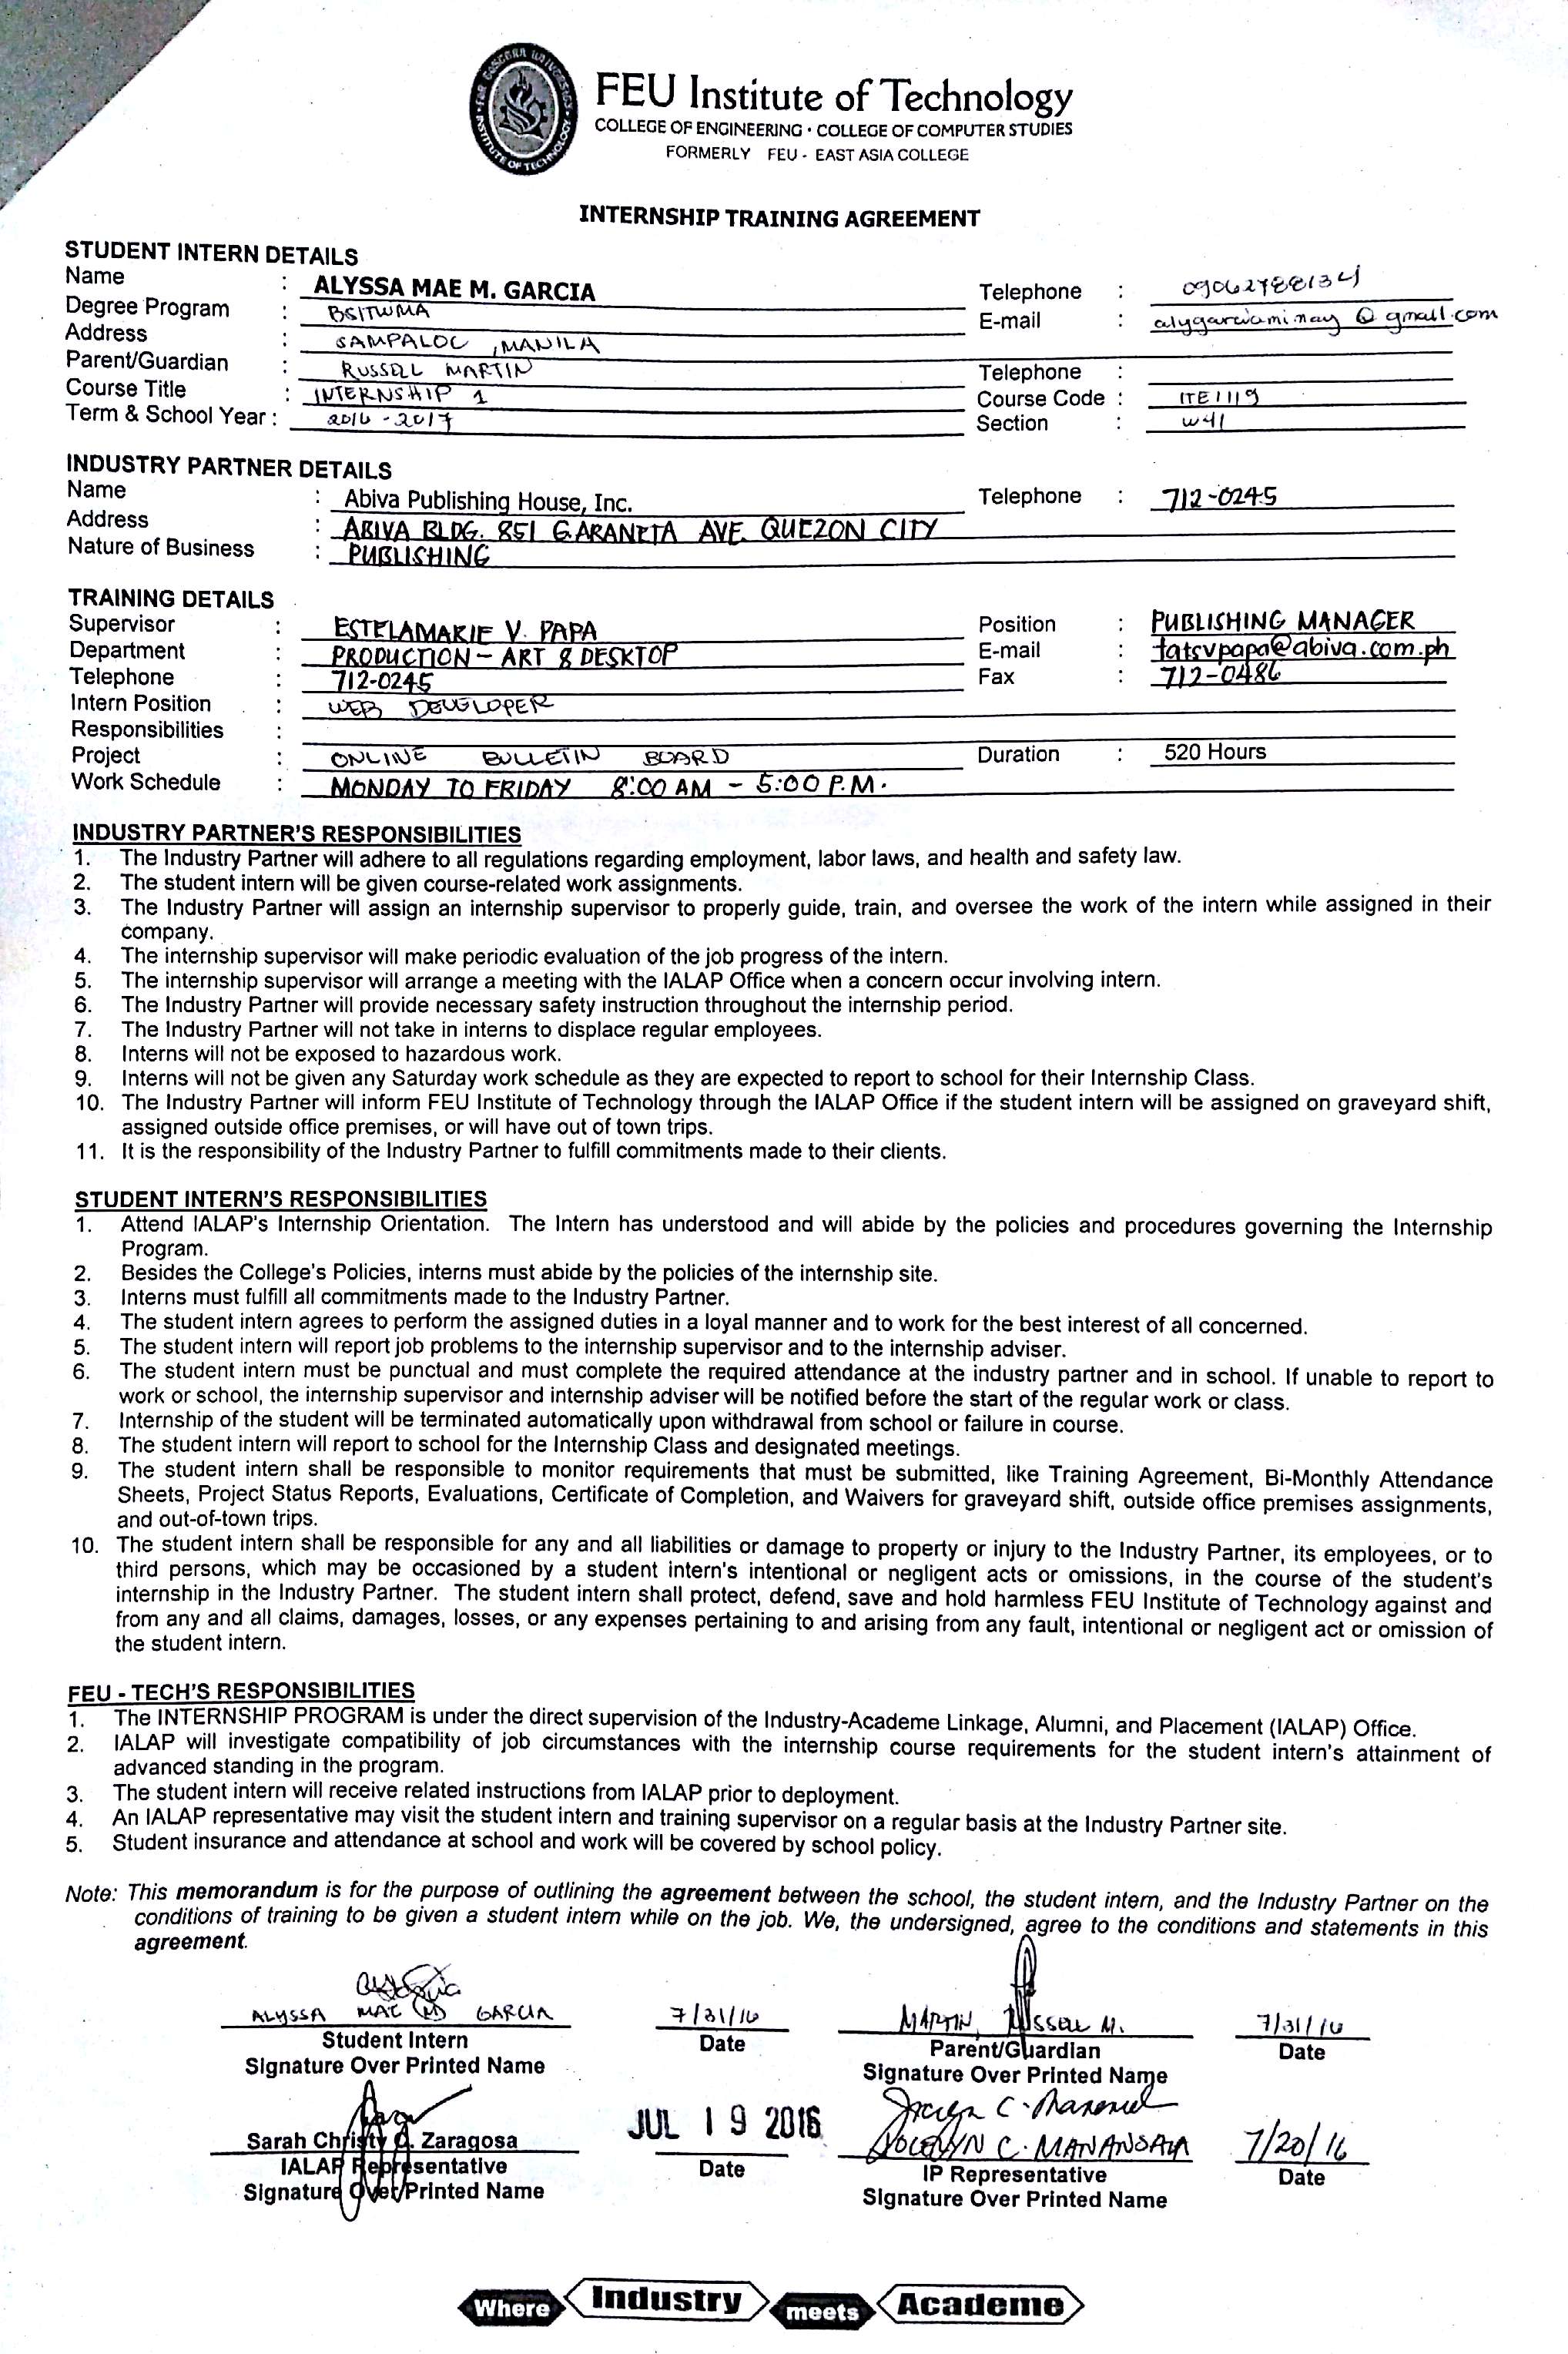 FAR EASTERN UNIVERSITY • INSTITUTE OF TECHNOLOGY •
FEU Institute of Technology
COLLEGE OF ENGINEERING • COLLEGE OF COMPUTER STUDIES
FORMERLY FEU - EAST ASIA COLLEGE
INTERNSHIP TRAINING AGREEMENT
STUDENT INTERN DETAILS
Name : ALYSSA MAE M. GARCIA Telephone :
Degree Program : BSITWMA E-mail : @ gmail.com
Address : SAMPALOC, MANILA
Parent/Guardian : RUSSELL MARTIN Telephone :
Course Title : INTERNSHIP 1 Course Code : ITE1119
Term & School Year : 2016 - 2017 Section : W41
INDUSTRY PARTNER DETAILS
Name : Abiva Publishing House, Inc. Telephone : 712-0245
Address : ABIVA BLDG. 851 G. ARANETA AVE. QUEZON CITY
Nature of Business : PUBLISHING
TRAINING DETAILS
Supervisor : ESTELAMARIE V. PAPA Position : PUBLISHING MANAGER
Department : PRODUCTION - ART & DESKTOP E-mail : tatsvpapa@abiva.com.ph
Telephone : 712-0245 Fax : 712-0486
Intern Position : WEB DEVELOPER
Responsibilities :
Project : ONLINE BULLETIN BOARD Duration : 520 Hours
Work Schedule : MONDAY TO FRIDAY 8:00 AM - 5:00 P.M.
INDUSTRY PARTNER'S RESPONSIBILITIES
1. The Industry Partner will adhere to all regulations regarding employment, labor laws, and health and safety law.
2. The student intern will be given course-related work assignments.
3. The Industry Partner will assign an internship supervisor to properly guide, train, and oversee the work of the intern while assigned in their
company.
4. The internship supervisor will make periodic evaluation of the job progress of the intern.
5. The internship supervisor will arrange a meeting with the IALAP Office when a concern occur involving intern.
6. The Industry Partner will provide necessary safety instruction throughout the internship period.
7. The Industry Partner will not take in interns to displace regular employees.
8. Interns will not be exposed to hazardous work.
9. Interns will not be given any Saturday work schedule as they are expected to report to school for their Internship Class.
10. The Industry Partner will inform FEU Institute of Technology through the IALAP Office if the student intern will be assigned on graveyard shift,
assigned outside office premises, or will have out of town trips.
11. It is the responsibility of the Industry Partner to fulfill commitments made to their clients.
STUDENT INTERN'S RESPONSIBILITIES
1. Attend IALAP's Internship Orientation. The Intern has understood and will abide by the policies and procedures governing the Internship
Program.
2. Besides the College's Policies, interns must abide by the policies of the internship site.
3. Interns must fulfill all commitments made to the Industry Partner.
4. The student intern agrees to perform the assigned duties in a loyal manner and to work for the best interest of all concerned.
5. The student intern will report job problems to the internship supervisor and to the internship adviser.
6. The student intern must be punctual and must complete the required attendance at the industry partner and in school. If unable to report to
work or school, the internship supervisor and internship adviser will be notified before the start of the regular work or class.
7. Internship of the student will be terminated automatically upon withdrawal from school or failure in course.
8. The student intern will report to school for the Internship Class and designated meetings.
9. The student intern shall be responsible to monitor requirements that must be submitted, like Training Agreement, Bi-Monthly Attendance
Sheets, Project Status Reports, Evaluations, Certificate of Completion, and Waivers for graveyard shift, outside office premises assignments,
and out-of-town trips.
10. The student intern shall be responsible for any and all liabilities or damage to property or injury to the Industry Partner, its employees, or to
third persons, which may be occasioned by a student intern's intentional or negligent acts or omissions, in the course of the student's
internship in the Industry Partner. The student intern shall protect, defend, save and hold harmless FEU Institute of Technology against and
from any and all claims, damages, losses, or any expenses pertaining to and arising from any fault, intentional or negligent act or omission of
the student intern.
FEU - TECH'S RESPONSIBILITIES
1. The INTERNSHIP PROGRAM is under the direct supervision of the Industry-Academe Linkage, Alumni, and Placement (IALAP) Office.
2. IALAP will investigate compatibility of job circumstances with the internship course requirements for the student intern's attainment of
advanced standing in the program.
3. The student intern will receive related instructions from IALAP prior to deployment.
4. An IALAP representative may visit the student intern and training supervisor on a regular basis at the Industry Partner site.
5. Student insurance and attendance at school and work will be covered by school policy.
Note: This memorandum is for the purpose of outlining the agreement between the school, the student intern, and the Industry Partner on the
conditions of training to be given a student intern while on the job. We, the undersigned, agree to the conditions and statements in this
agreement.
ALYSSA MAE M GARCIA 7/31/16 MARTIN, RUSSELL M. 7/31/16
Student Intern Date Parent/Guardian Date
Signature Over Printed Name Signature Over Printed Name
Sarah Christy Q. Zaragosa JUL 19 2016 JOCELYN C. MANANSALA 7/20/16
IALAP Representative Date IP Representative Date
Signature Over Printed Name Signature Over Printed Name
Where Industry meets Academe